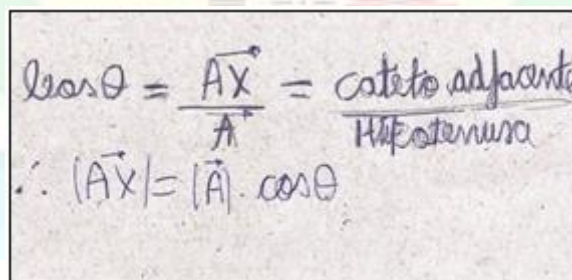 cosθ = AX⃗ / A⃗ = cateto adjacente / Hipotenusa
∴ |AX⃗| = |A⃗| . cosθ